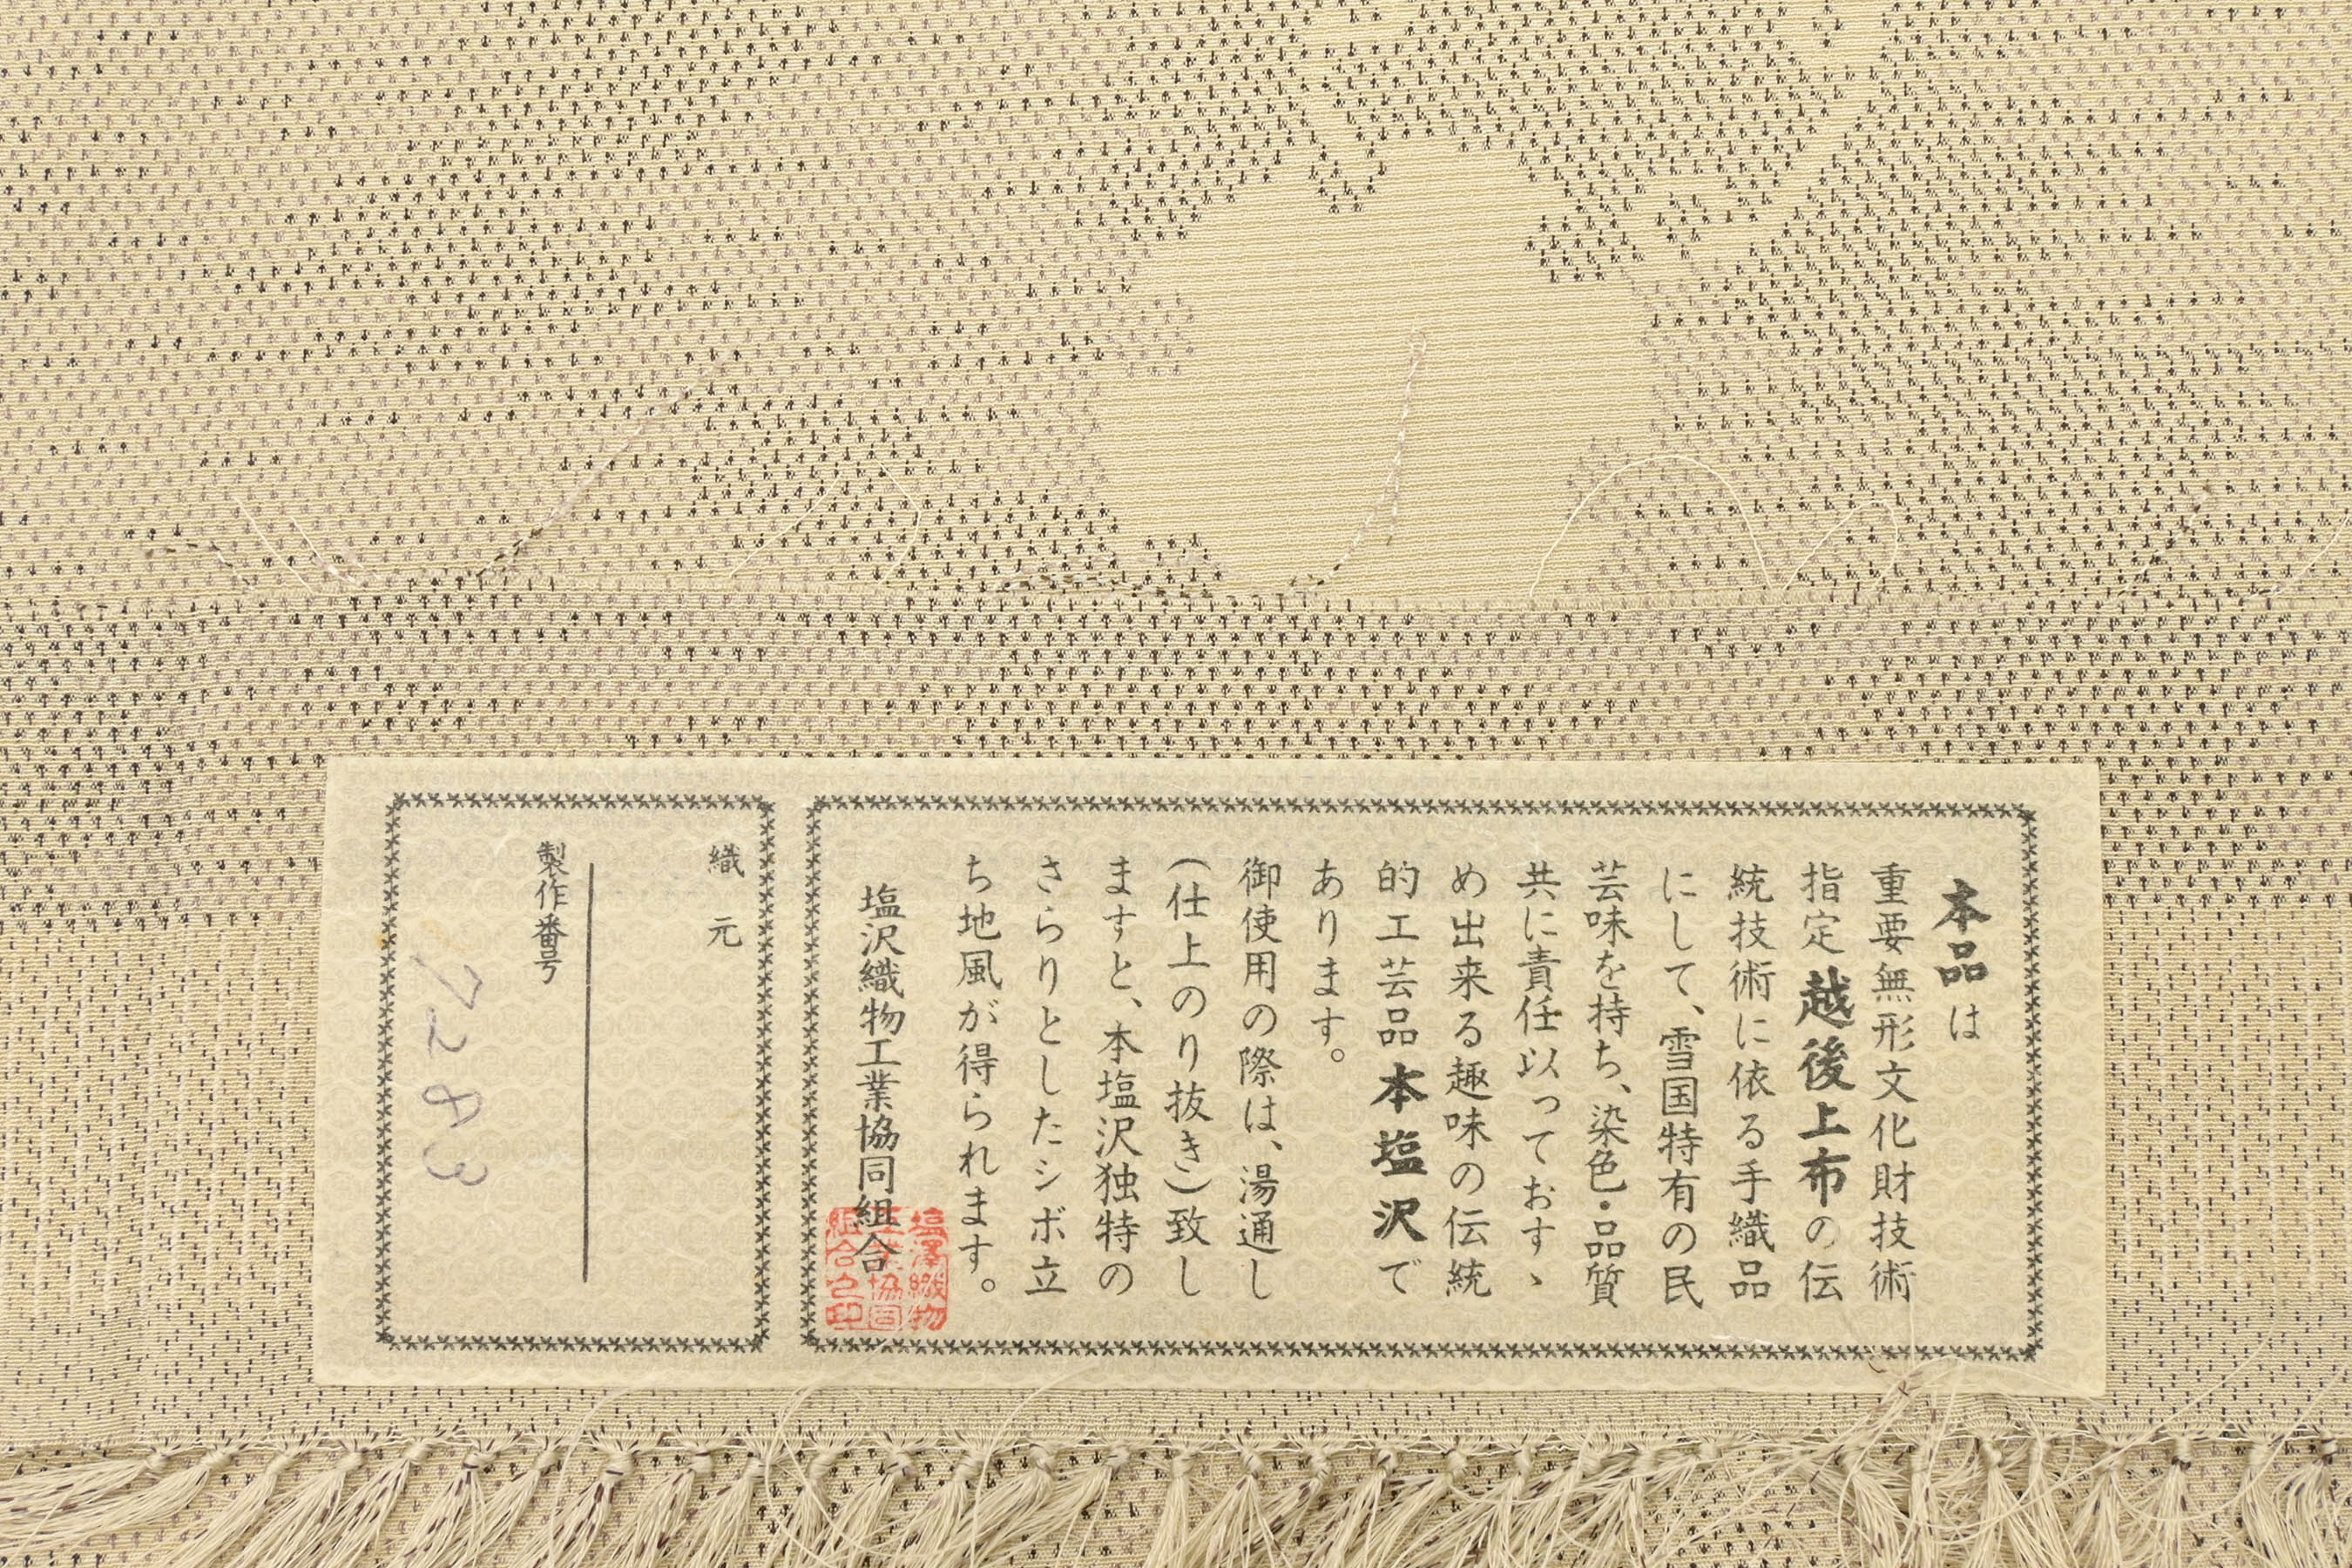 本品は
重要無形文化財技術
指定越後上布の伝
統技術に依る手織品
にして、雪国特有の民
芸味を持ち、染色・品質
共に責任以っておすゝ
め出来る趣味の伝統
的工芸品本塩沢で
あります。
御使用の際は、湯通し
(仕上のり抜き)致し
ますと、本塩沢独特の
さらりとしたシボ立
ち地風が得られます。
塩沢織物工業協同組合
塩澤織物
工業協同
組合之印
織元
製作番号
7283